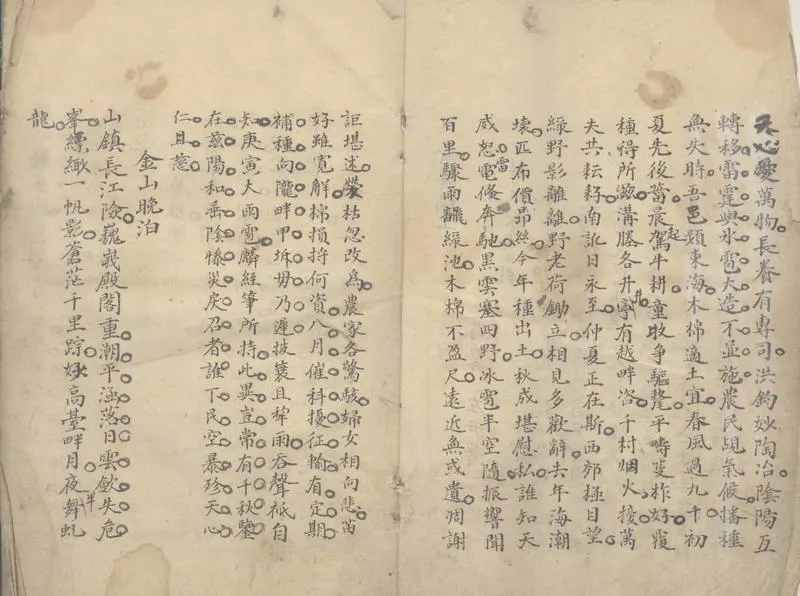 天心愛萬物長養有專司洪鈞妙陶冶陰陽互
轉移雷霆與氷雹大造不並施農民覘氣候播種
無失時吾邑瀕東海木棉適土宜春風過九十初
夏先後菑晨起駕牛耕童牧争驅犛平疇芟柞好覆
種得所滋溝塍各井井寧有越畔咨千村烟火接萬
夫共耘耔南訛日永至仲夏正在斯西郊極目望
綠野影離離野老荷鋤立相見多歡辭去年海潮
壞匹布價昻絲今年種出土秋成堪慰私誰知天
威怒雷電倏奔馳黒雲塞四野冰雹半空隨振響聞
百里驟雨飜綠池木棉不盈尺遠近無或遺凋謝
詎堪述榮枯忽改為農家各驚駭婦女相向悲苗
好雖寬解棉損持何資八月催科擾征輸有定期
補種向隴畔甲坼毋乃遲披蓑且犂雨吞聲祗自
知庚寅大雨雹麟經筆所持此異豈常有千秋鑒
在兹陽和垂陰慘災戾召者誰下民空暴殄天心
仁且慈
金山晚泊
山鎮長江險巍峩殿閣重潮平涵落日雲斂失危
峯縹緲一帆影蒼茫千里踪妙高臺畔月夜半舞虬
龍